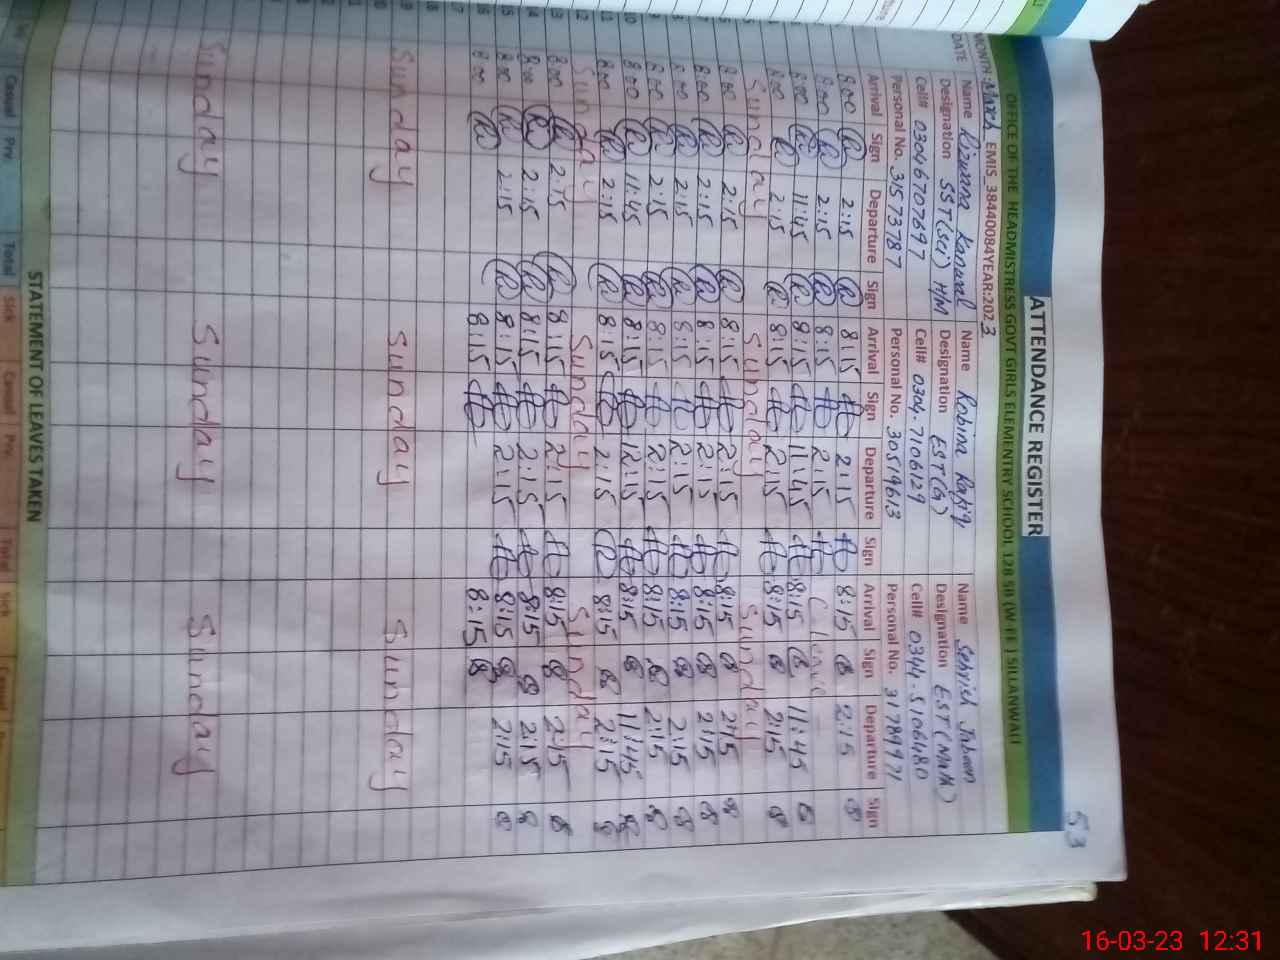 53
ATTENDANCE REGISTER
OFFICE OF THE HEADMISTRESS GOVT GIRLS ELEMENTRY SCHOOL 128 SB (W-EE) SILLANWALI
MONTH: March EMIS_38440084YEAR:2023
DATE Name Rizwana Name Robina Rafiq Name Sehrish Jabeen
Designation SST(Sci) H/M Designation EST Designation EST (Math)
Cell# 03046707697 Cell# 0304-7106129 Cell# 0344-5106480
Personal No. 31573787 Personal No. 30519613 Personal No. 31789971
Arrival Sign Departure Sign Arrival Sign Departure Sign Arrival Sign Departure Sign
8:00 2:15 8:15 2:15 8:15 2:15
8:00 2:15 8:15 2:15 C Leave
8:00 11:45 8:15 11:45 8:15 11:45
8:00 2:15 8:15 2:15 8:15 2:15
Sunday Sunday Sunday
8:00 2:15 8:15 2:15 8:15 2:15
7 8:00 2:15 8:15 2:15 8:15 2:15
8 8:00 2:15 8:15 2:15 8:15 2:15
9 8:00 2:15 8:15 2:15 8:15 2:15
10 8:00 11:45 8:15 12:15 8:15 11:45
11 8:00 2:15 8:15 2:15 8:15 2:15
12 Sunday Sunday Sunday
13 8:00 2:15 8:15 2:15 8:15 2:15
14 8:00 2:15 8:15 2:15 8:15 2:15
15 8:00 2:15 8:15 2:15 8:15 2:15
16 8:00 8:15 8:15
17
18
19 Sunday Sunday Sunday
20
Sunday Sunday Sunday
STATEMENT OF LEAVES TAKEN
Casual Prv. Total Sick Casual Prv. Total Sick Casual
16-03-23 12:31